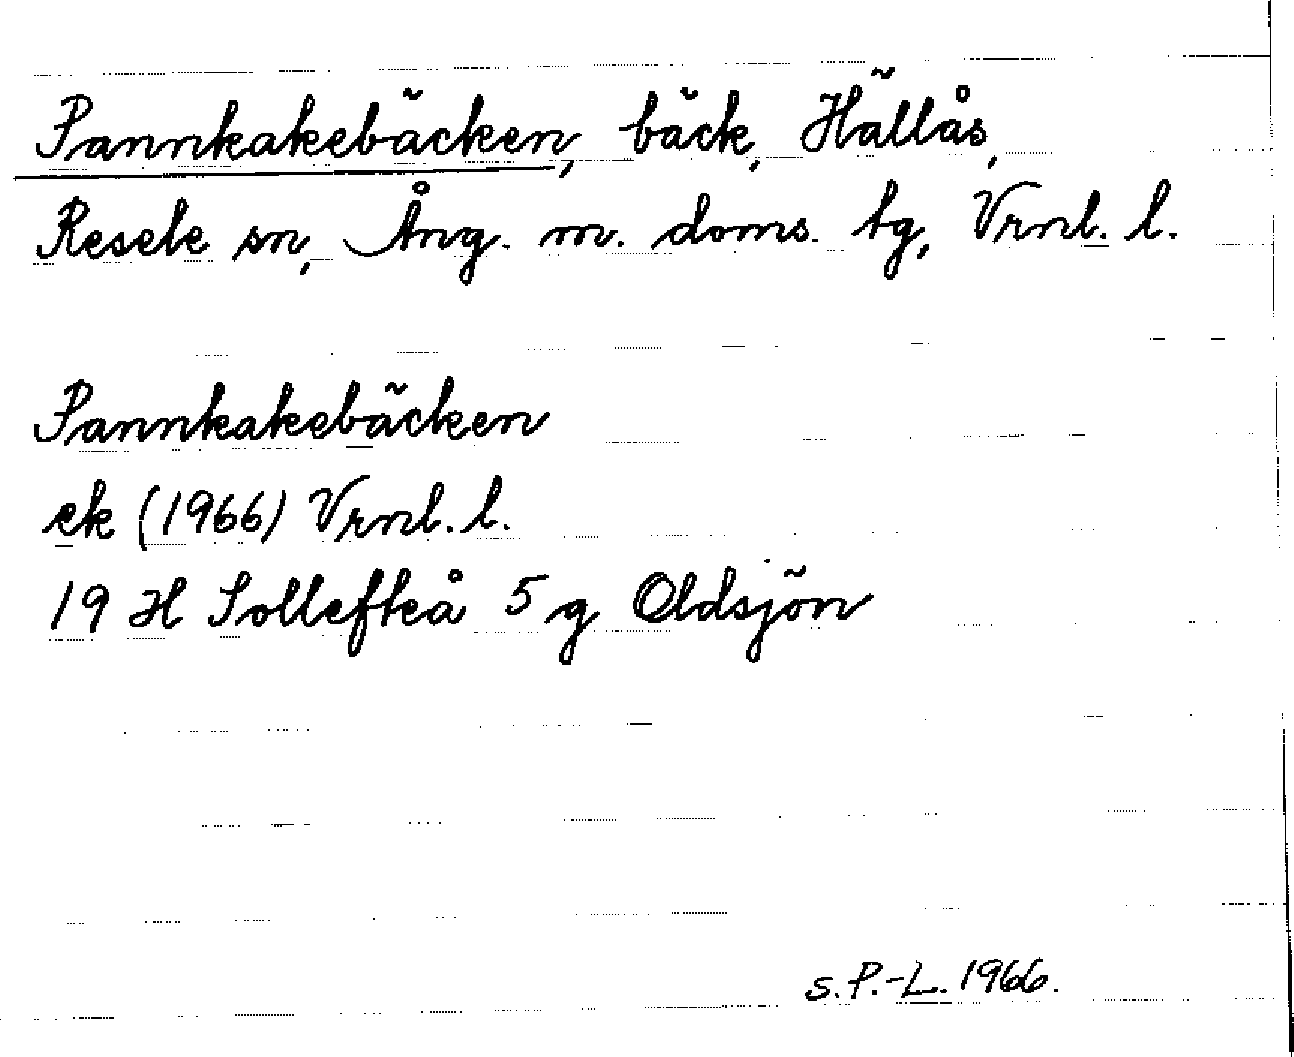 Pannkakebäcken, bäck, Hällås,
Resele sn, Ång. m. doms. tg, Vrnl. l.
Pannkakebäcken
ek (1966) Vrnl. l.
19 H Sollefteå 5 g Oldsjön
S. P.-L. 1966.